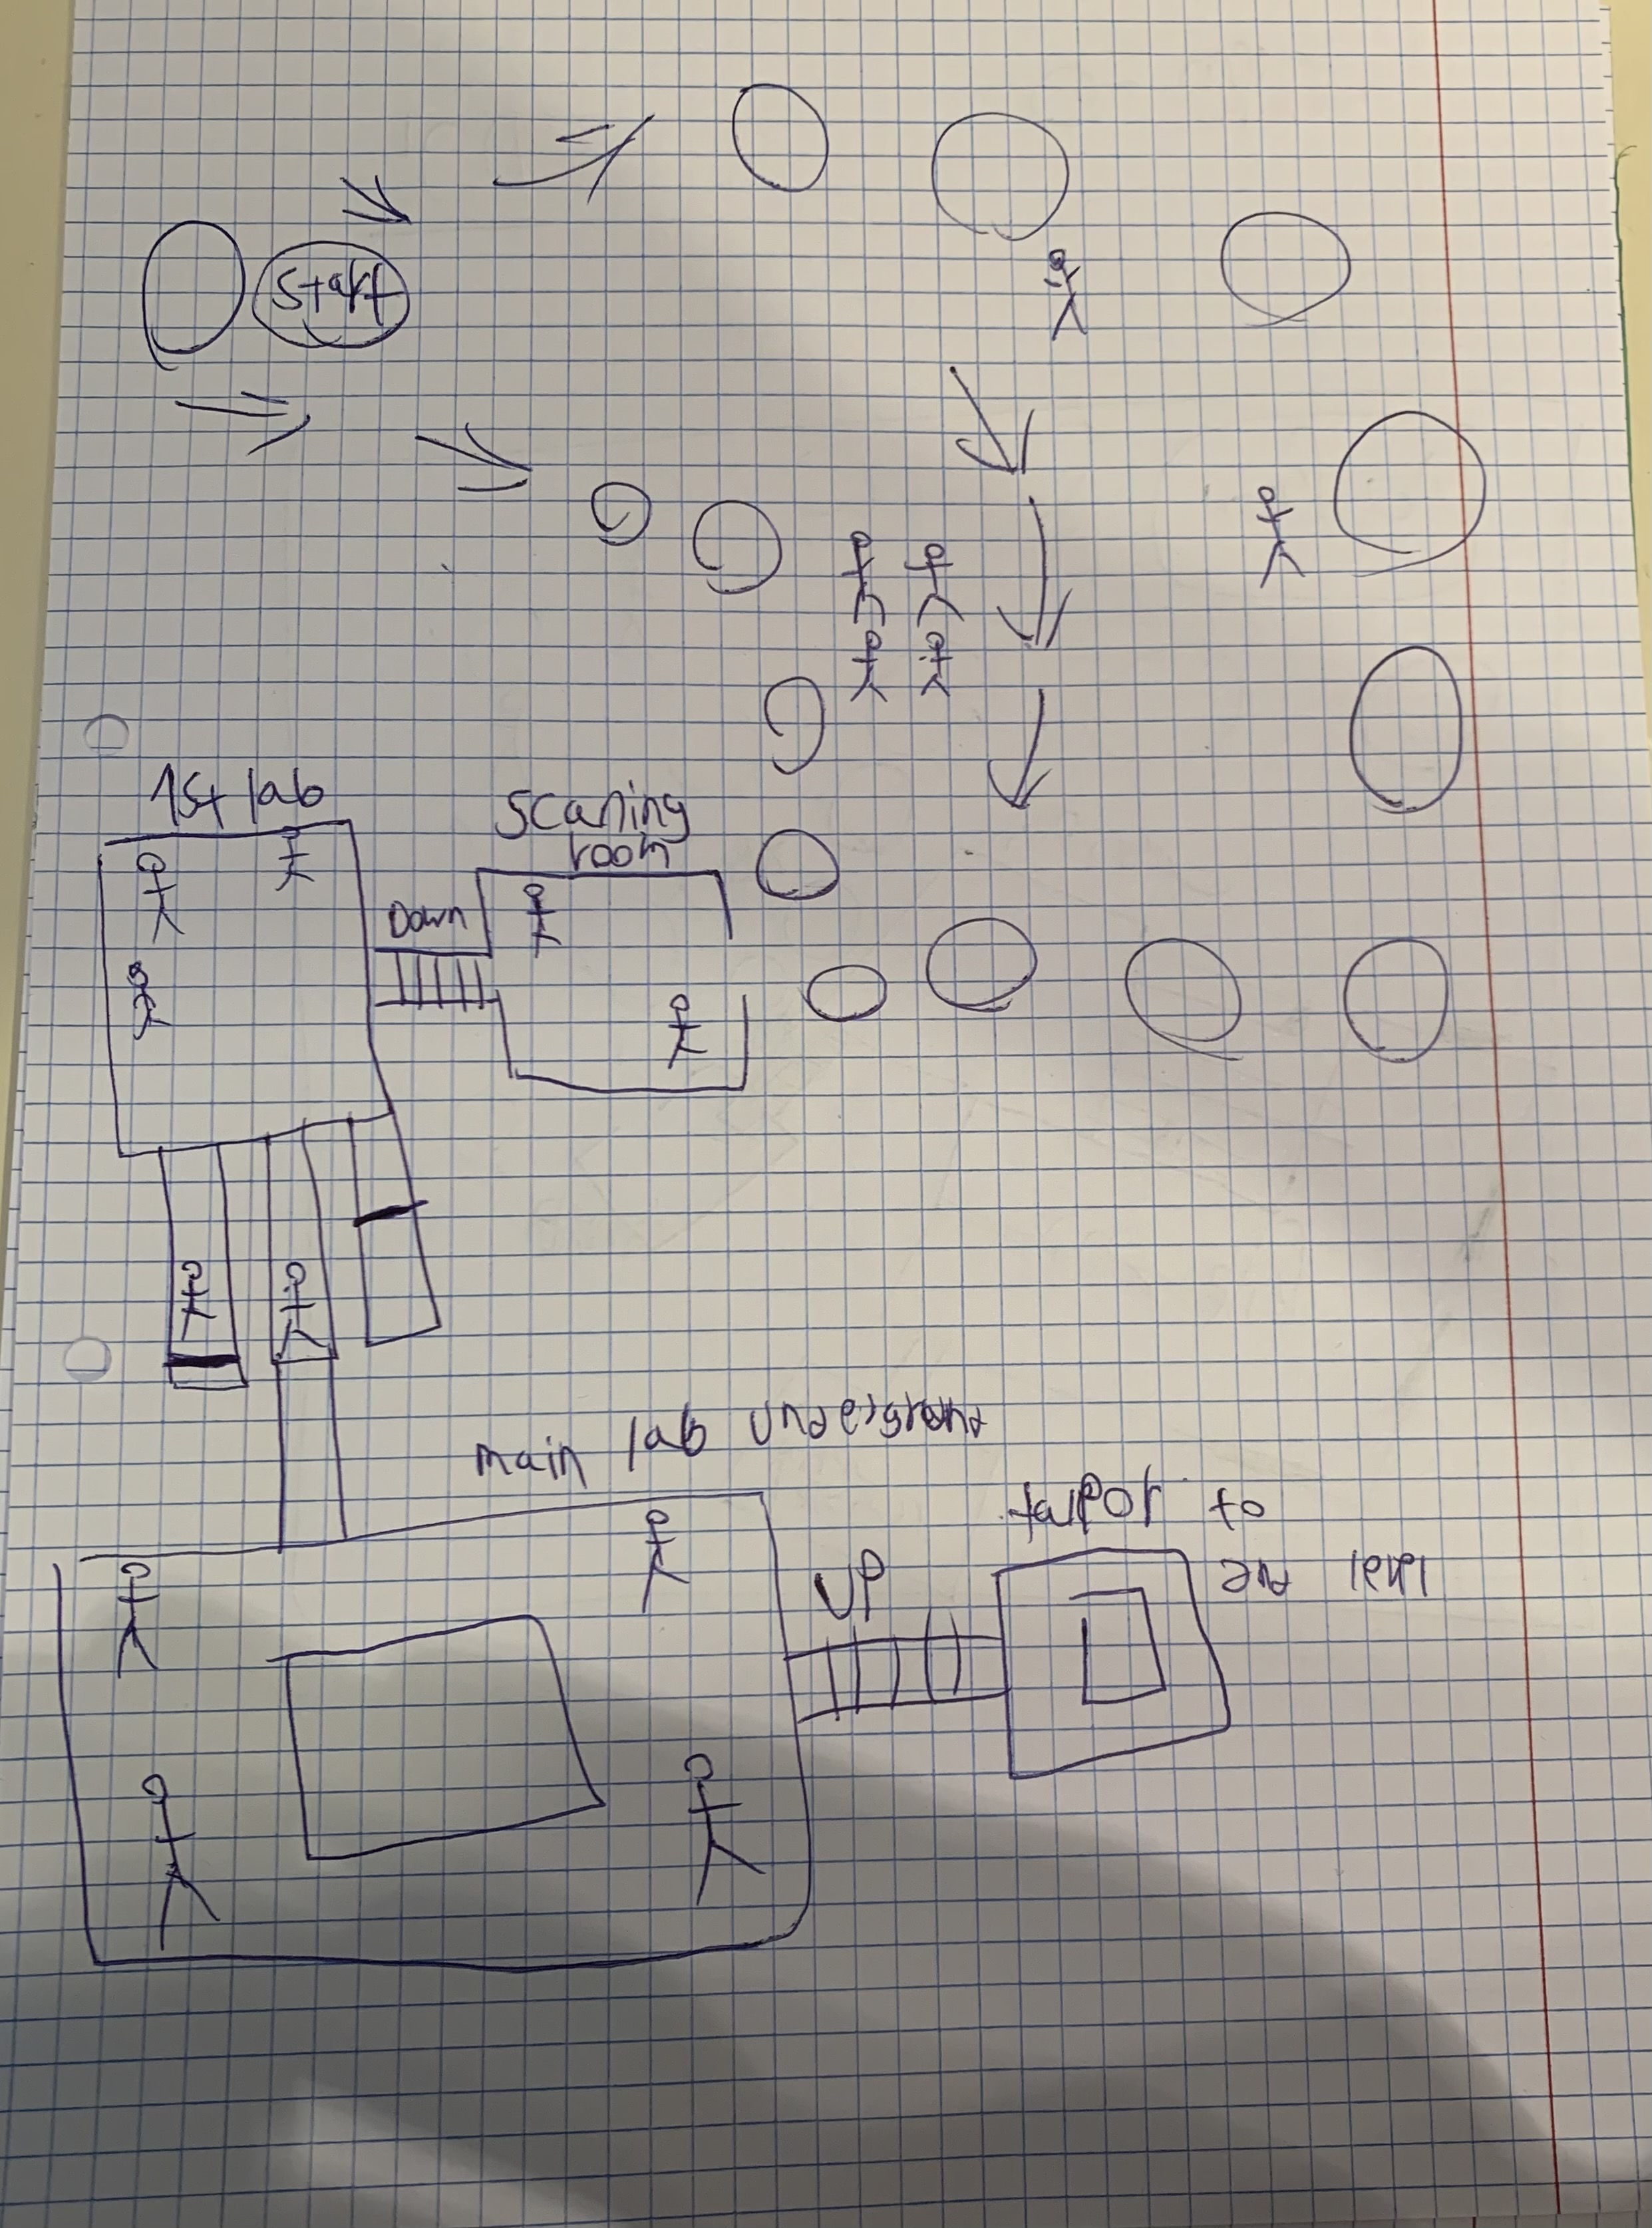 Start
1st lab
Scaning
room
Down
main lab undergrond
UP
talpor to
2nd level